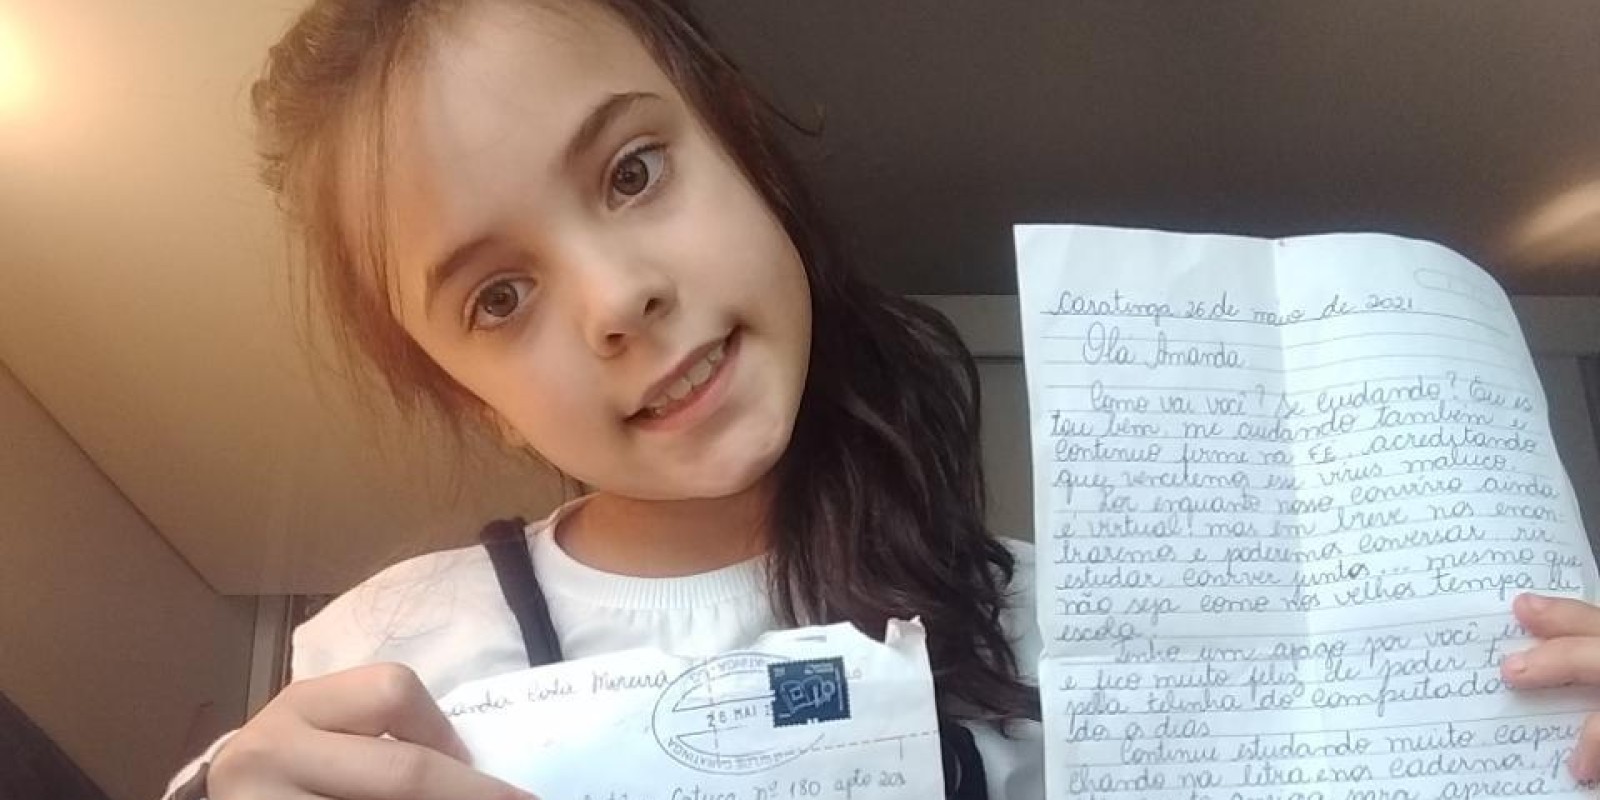 Caratinga 26 de maio de 2021
Olá Amanda
Como vai você? Se cuidando? Eu es
tou bem, me cuidando também e
continuo firme na FÉ, acreditando
que venceremos esse vírus maluco.
Por enquanto nosso convívio ainda
é virtual! mas em breve nos encon-
traremos e poderemos conversar, rir
estudar conviver juntos... mesmo que
não seja como nos velhos tempos de
escola.
Tenho um apego por você
e fico muito feliz de poder
pela telinha do computado
dos dias
Continue estudando muito, capri
chando na letra e nos caderno,
para aprecia
Costa Moreira
26 MAI
CARATINGA
nº 180 apto 203